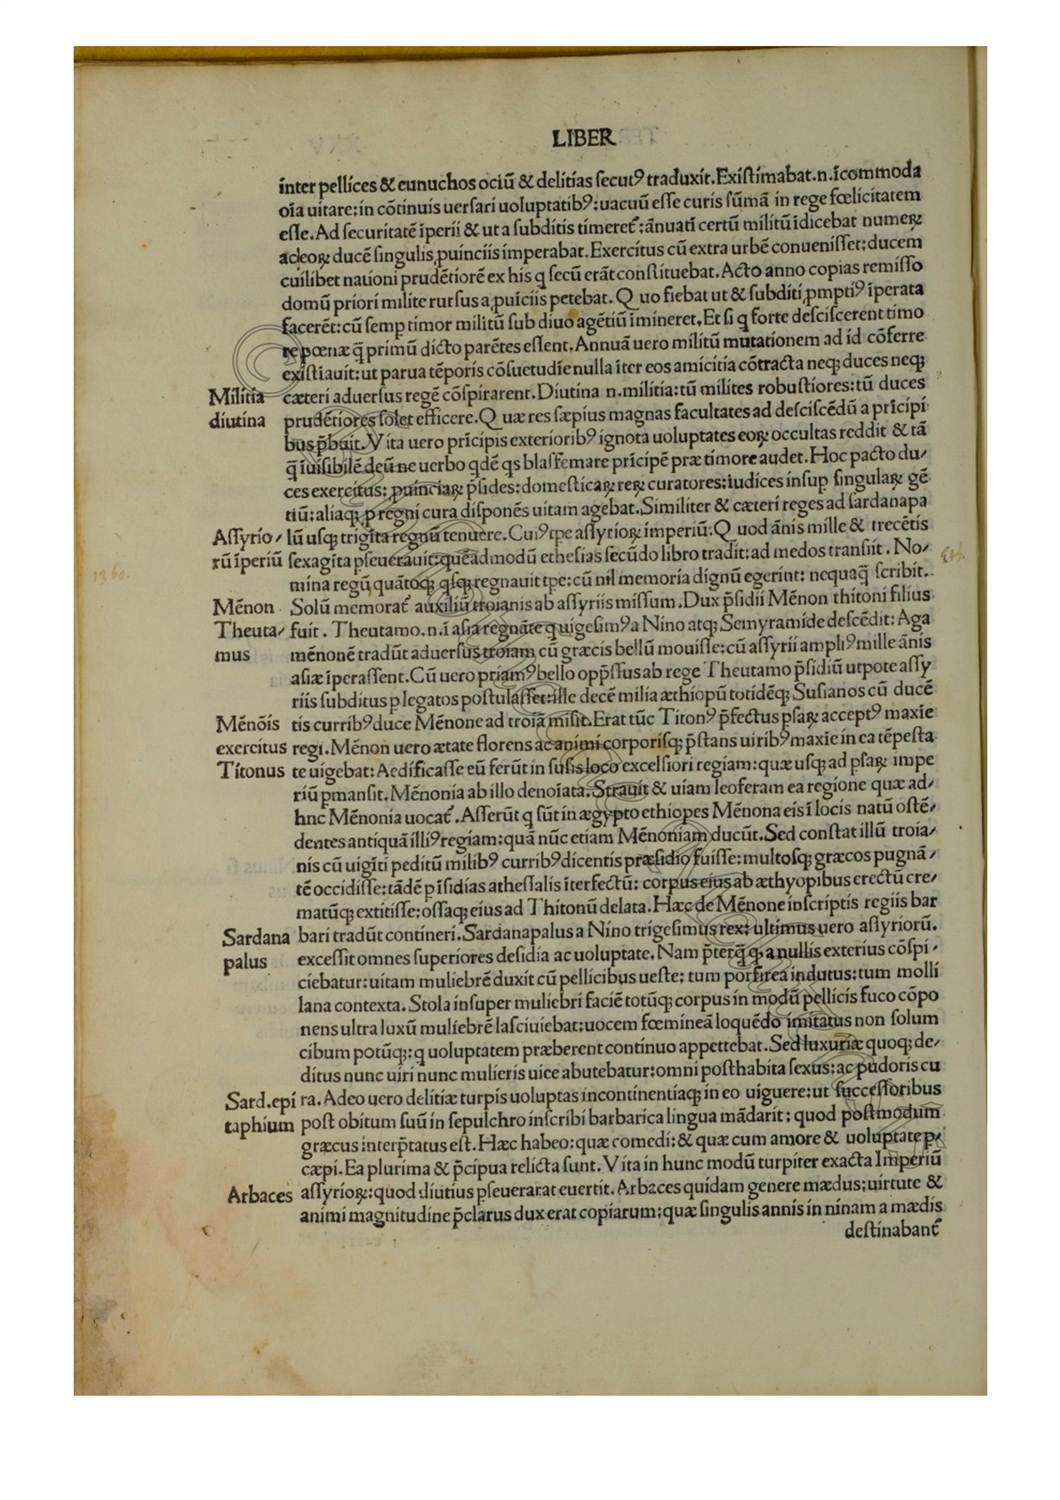 LIBER
inter pellices & eunuchos ociū & delitias secutꝰ traduxit. Existimabat.n.īcommoda
oīa uitare: in cōtinuis uersari uoluptatibꝰ: uacuū esse curis sūmā in rege fœlicitatem
esse. Ad securitatē īperii & ut a subditis timeret᷑: ānuatī certū militū īdicebat numeꝝ
adeoꝝ ducē singulis ꝓuinciis imperabat. Exercitus cū extra urbē conuenisset: ducem
cuilibet nationi prudētiorē ex his q̄ secū erāt constituebat. Acto anno copias remisso
domū priori milite rursus a ꝓuīciis petebat. Quo fiebat ut & subditi ꝓmptiꝰ īperata
facerēt: cū semp timor militū sub diuo agētiū īmineret. Et si q forte desciscerent timo
re pœnæ q̄ primū dicto parētes essent. Annuā uero militū mutationem ad id cōferre
existiauit: ut parua tēporis cōsuetudie nulla iter eos amicitia cōtracta neqꝫ duces neqꝫ
Militia cæteri aduersus regē cōspirarent. Diutina .n. militia: tū milites robustiores: tū duces
diutina prudētiores solet efficere. Quæ res sæpius magnas facultates ad desciscēdū a prīcipi
bus p̄buit. Vita uero prīcipis exterioribꝰ ignota uoluptates eoꝝ occultas reddit & tā
q̄ īuisibilē deū ne uerbo qdē qs blasfemare prīcipē præ timore audet. Hoc pacto du/
ces exercitus: ꝓuinciaꝝ p̄sides: domesticaꝝ reꝝ curatores: iudices insup singulaꝝ gē
tiū: aliaqꝫ ꝓ regni cura disponēs uitam agebat. Similiter & cæteri reges ad sardanapa
Assyrio/ lū usqꝫ trigīta regnū tenuere. Cuiꝰ tpe assyrioꝝ imperiū: Quod ānis mille & trecētis
rū īperiū sexagīta pseuerauit: queadmodū ethesias secūdo libro tradit: ad medos transiit. No/
mina regū quātoqꝫ qsqꝫ regnauit tpe: cū nil memoria dignū egerint: nequaq̄ scribit.
Mēnon Solū memorat᷑ auxiliū troianis ab assyriis missum. Dux p̄sidii Mēnon thitoni filius
Theuta/ fuit. Theutamo.n.ī asia regnāte q uigesimꝰ a Nino atqꝫ Semyramide descēdit: Aga
mus mēnonē tradūt aduersus troiam cū græcis bellū mouisse: cū assyrii ampliꝰ mille ānis
asiæ īperassent. Cū uero priamꝰ bello opp̄ssus ab rege Theutamo p̄sidiū utpote assy
riis subditus p legatos postulasset: ille decē milia æthiopū totidēqꝫ Susianos cū ducē
Mēnōis tis curribꝰ duce Mēnone ad troiā misit. Erat tūc Titonꝰ p̄fectus psaꝝ acceptꝰ maxie
exercitus regi. Mēnon uero ætate florens ac animi corporisqꝫ p̄stans uiribꝰ maxie in ea tēpesta
Titonus te uigebat: Aedificasse eū ferūt in susis loco excelsiori regiam: quæ usqꝫ ad psaꝝ impe
riū pmansit. Mēnonia ab illo denoīata. Strauit & uiam leoferam ea regione quæ ad/
hnc Mēnonia uocat᷑. Asserūt q sūt in ægypto ethiopes Mēnona eis ī locis natū ostē/
dentes antiquā illiꝰ regiam: quā nūc etiam Mēnoniam ducūt. Sed constat illū troia/
nis cū uigīti peditū milibꝰ curribꝰ dicentis præsidio fuisse: multosqꝫ græcos pugnā/
tē occidisse: tādē p īsidias a thessalis īterfectū: corpus eius ab æthyopibus erectū cre/
matūqꝫ extitisse: ossaqꝫ eius ad Thitonū delata. Hæc de Mēnone inscriptis regiis bar
Sardana bari tradūt contineri. Sardanapalus a Nino trigesimus rex: ultimus uero assyriorū.
palus excessit omnes superiores desidia ac uoluptate. Nam p̄terq̄ q a nullis exterius cōspi/
ciebatur: uitam muliebrē duxit cū pellicibus ueste: tum porfirea indutus: tum molli
lana contexta. Stola insuper muliebri faciē totūqꝫ corpus in modū pellicis fuco cōpo
nens ultra luxū muliebrē lasciuiebat: uocem fœmineā loquēdo imitatus non solum
cibum potūqꝫ: q uoluptatem præberent continuo appettebat. Sed luxuriæ quoqꝫ de/
ditus nunc uiri nunc mulieris uice abutebatur: omni posthabita sexus: ac pudoris cu
Sard.epi ra. Adeo uero delitiæ turpis uoluptas incontinentiaqꝫ in eo uiguere: ut successoribus
taphium post obitum suū in sepulchro inscribi barbarica lingua mādarit: quod postmodum
græcus interp̄tatus est. Hæc habeo: quæ comedi: & quæ cum amore & uoluptate p/
cæpi. Ea plurima & p̄cipua relicta sunt. Vita in hunc modū turpiter exacta Imperiū
Arbaces assyrioꝝ: quod diutius pseuerarat euertit. Arbaces quidam genere mædus: uirtute &
animi magnitudine p̄clarus dux erat copiarum: quæ singulis annis in ninam a mædis
destinabant᷑
1360